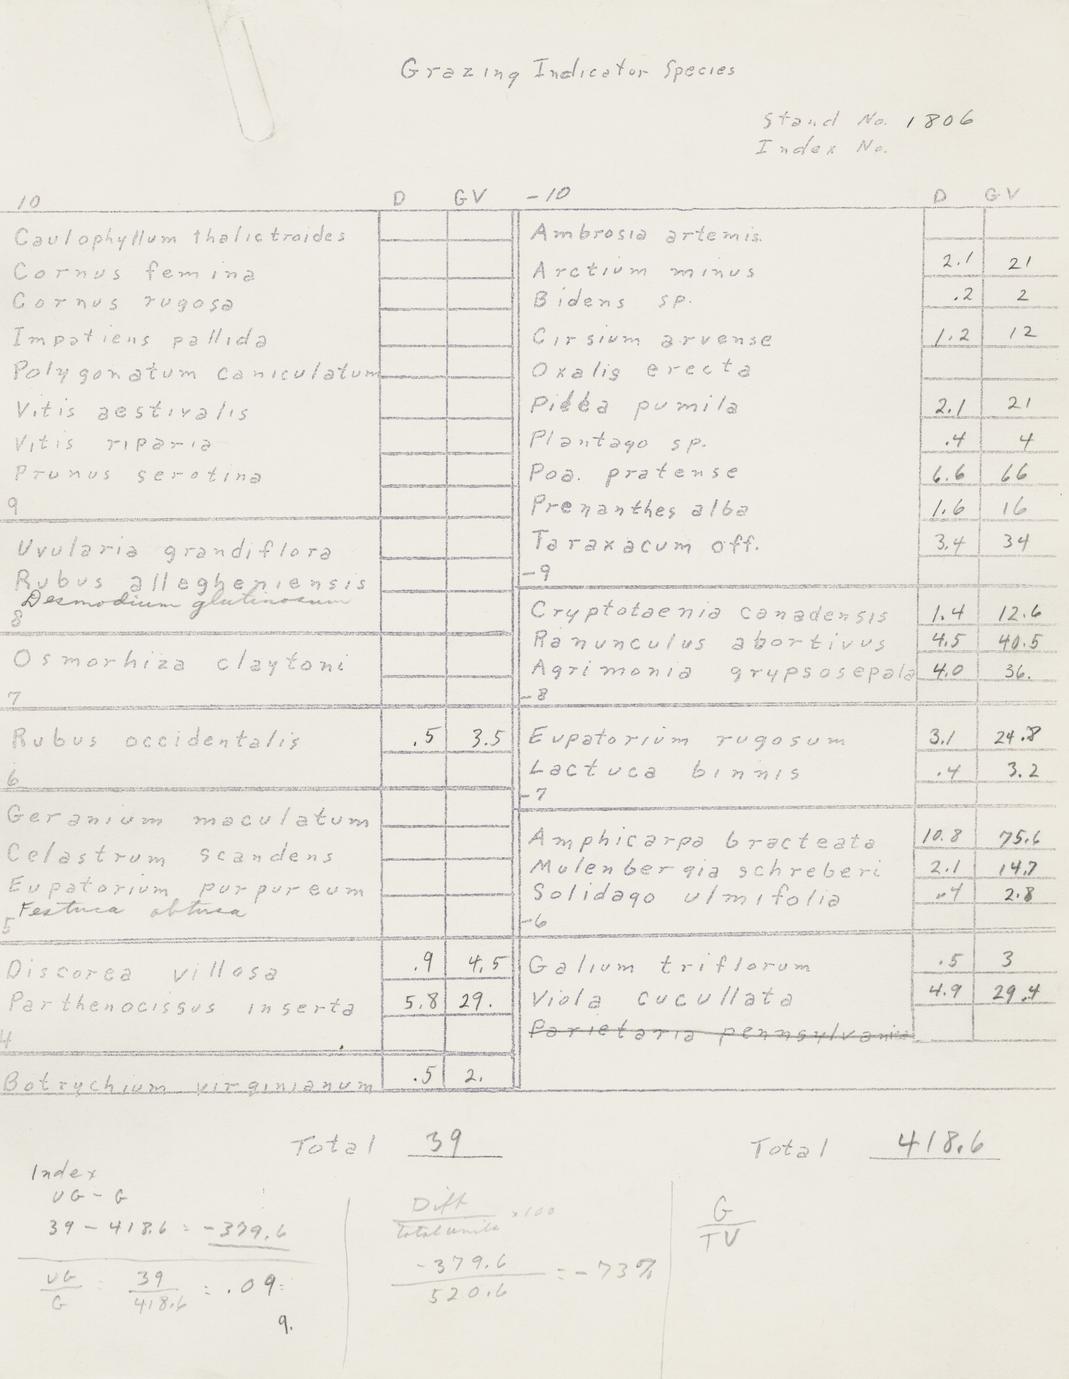 Grazing Indicator Species
Stand No. 1806
Index No.
10 D GV
Caulophyllum thalictroides
Cornus femina
Cornus rugosa
Impatiens pallida
Polygonatum caniculatum
Vitis aestivalis
Vitis riparia
Prunus serotina
9
Uvularia grandiflora
Rubus allegheniensis
Desmodium glutinosum
8
Osmorhiza claytoni
7
Rubus occidentalis .5 3.5
6
Geranium maculatum
Celastrum scandens
Eupatorium purpureum
Festuca obtusa
5
Discorea villosa .9 4.5
Parthenocissus inserta 5.8 29.
4
Botrychium virginianum .5 2.
Total 39
-10 D GV
Ambrosia artemis.
Arctium minus 2.1 21
Bidens sp. .2 2
Cirsium arvense 1.2 12
Oxalis erecta
Pilea pumila 2.1 21
Plantago sp. .4 4
Poa. pratense 6.6 66
Prenanthes alba 1.6 16
Taraxacum off. 3.4 34
-9
Cryptotaenia canadensis 1.4 12.6
Ranunculus abortivus 4.5 40.5
Agrimonia grypsosepala 4.0 36.
-8
Eupatorium rugosum 3.1 24.8
Lactuca binnis .4 3.2
-7
Amphicarpa bracteata 10.8 75.6
Mulenbergia schreberi 2.1 14.7
Solidago ulmifolia .4 2.8
-6
Galium triflorum .5 3
Viola cucullata 4.9 29.4
Parietaria pennsylvanica
Total 418.6
Index
UG - G
39 - 418.6 = -379.6
UG/G = 39/418.6 = .09=
9.
Diff/Total units x100
-379.6/520.6 = -73%
G/TV